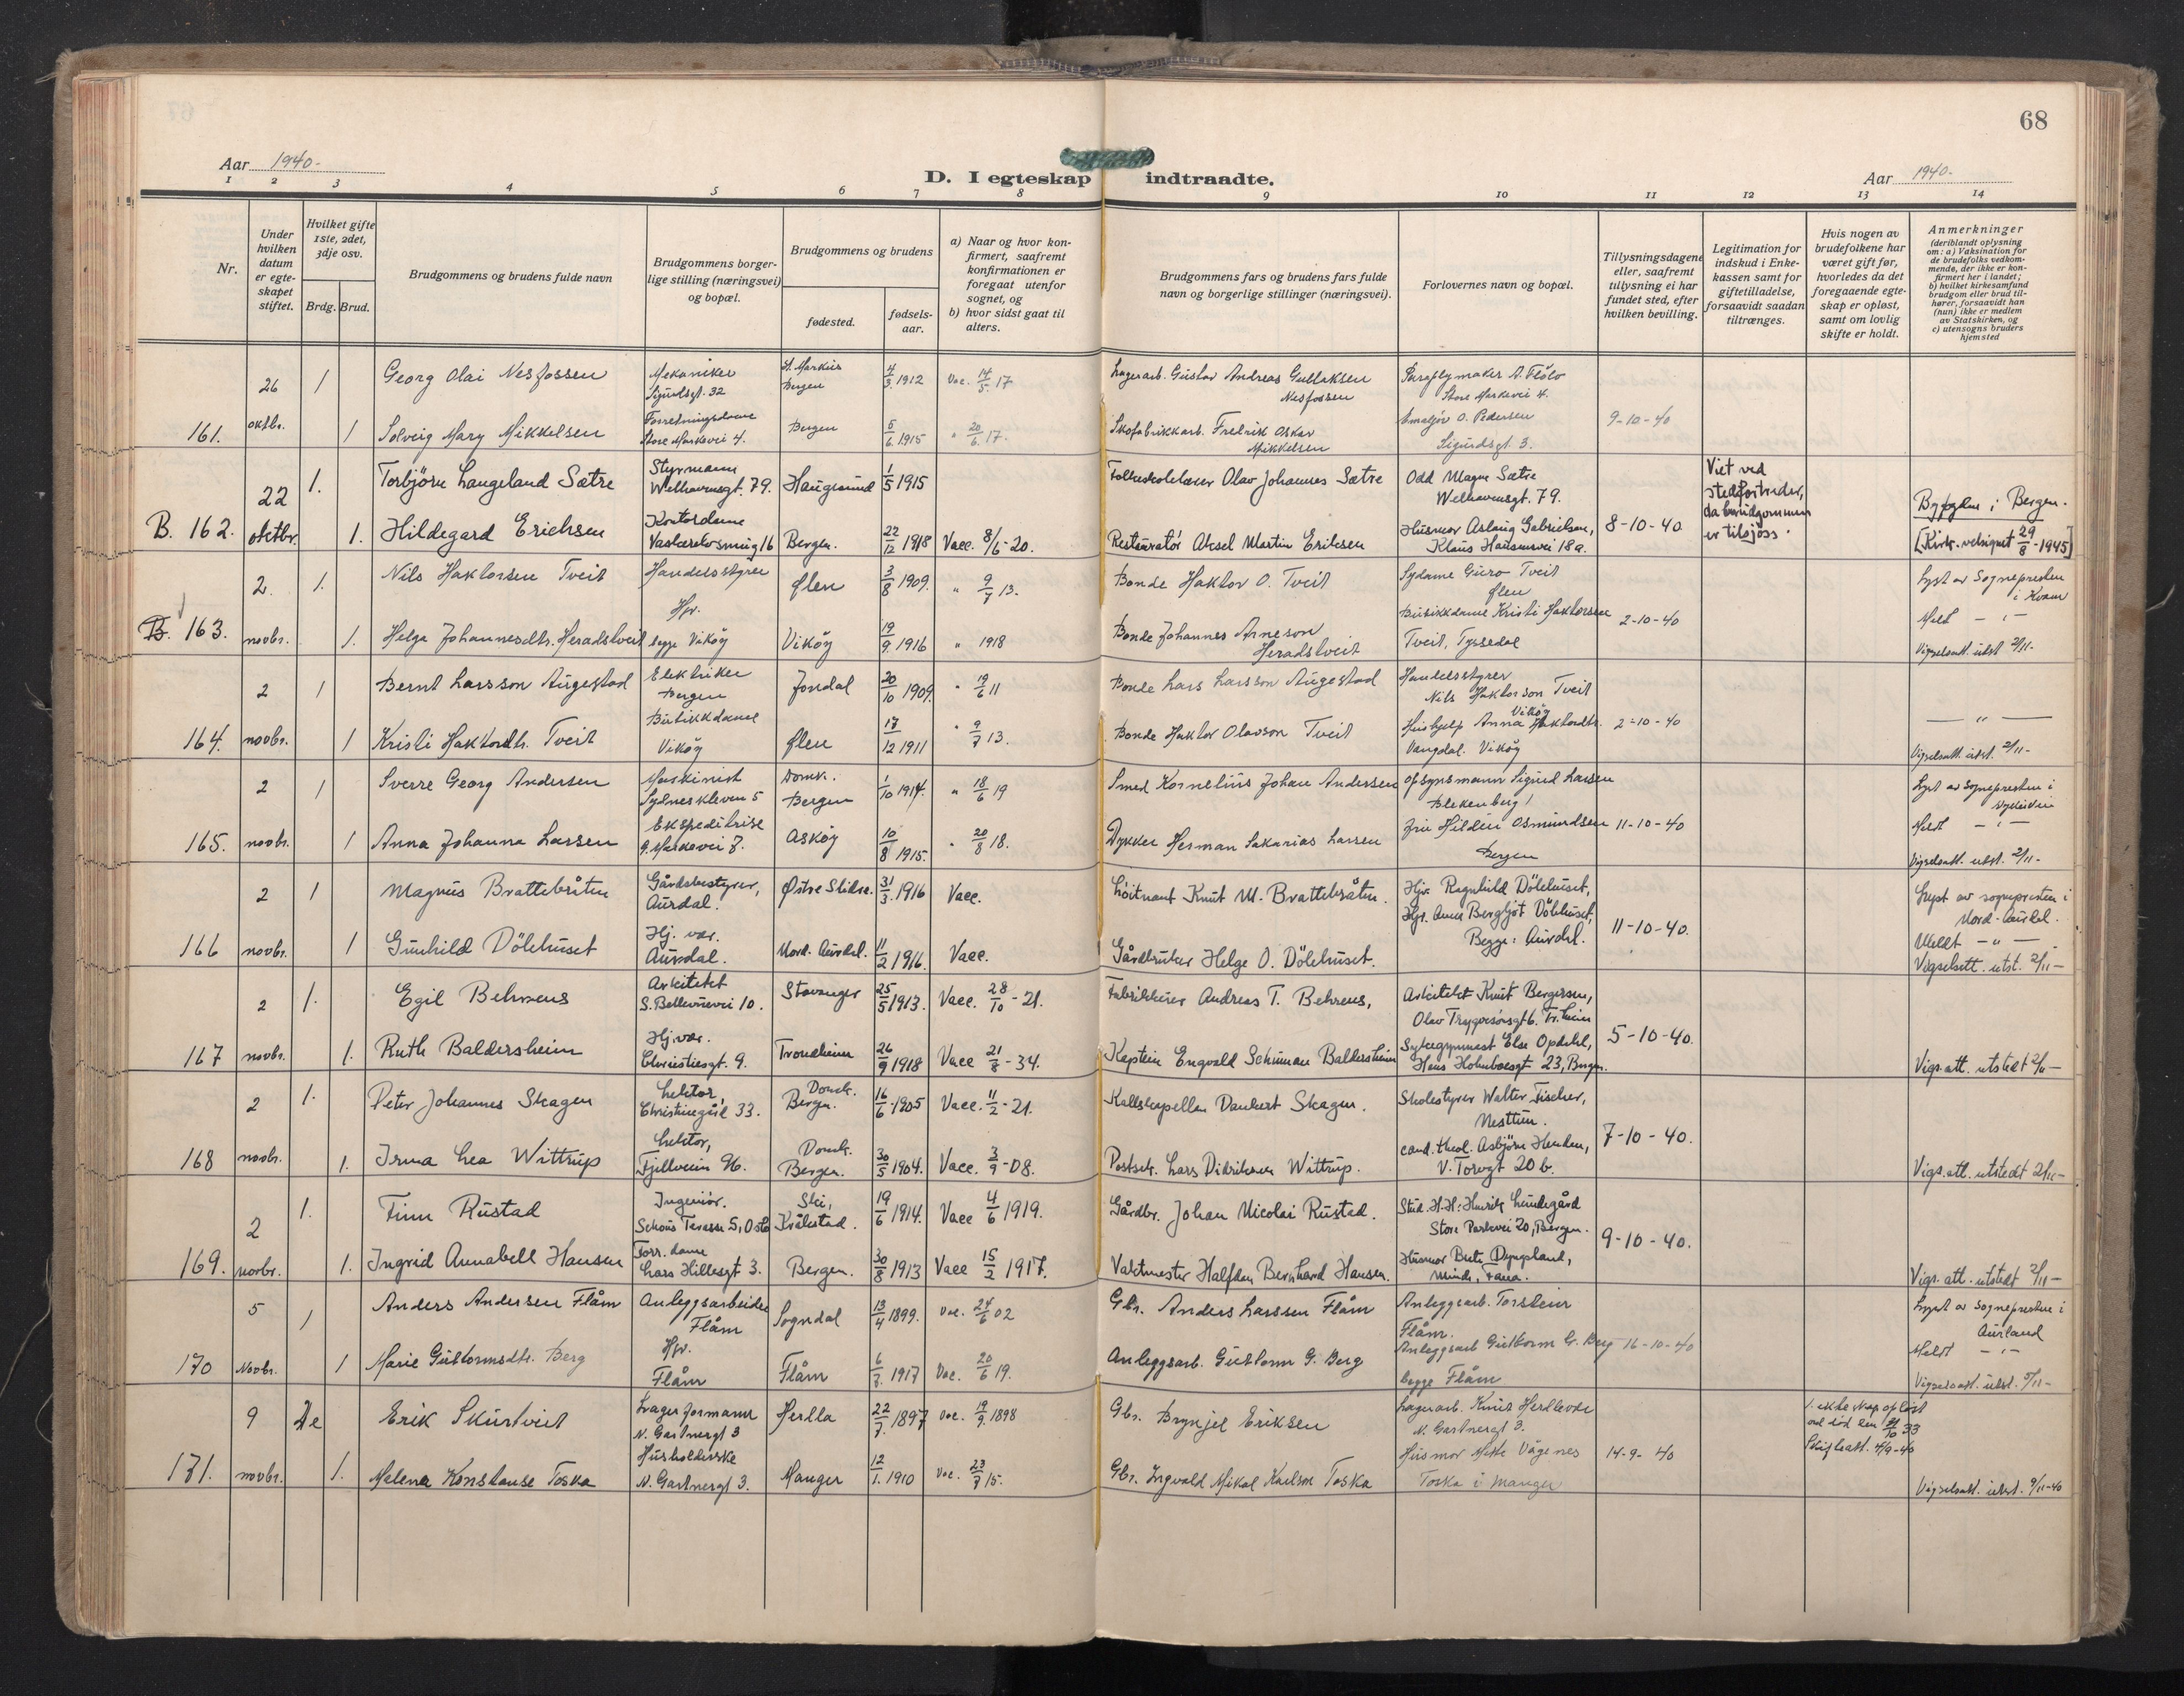 68
Aar 1940-
D. I egteskap indtraadte.
Aar 1940-
1 2 3 4 5 6 7 8 9 10 11 12 13 14
Nr.
Under hvilken datum er egteskapet stiftet.
Hvilket gifte 1ste, 2det, 3dje osv.
Brdg. Brud.
Brudgommens og brudens fulde navn
Brudgommens borgerlige stilling (næringsvei) og bopæl.
Brudgommens og brudens
fødested.
fødselsaar.
a) Naar og hvor konfirmert, saafremt konfirmationen er foregaat utenfor sognet, og
b) hvor sidst gaat til alters.
Brudgommens fars og brudens fars fulde navn og borgerlige stillinger (næringsvei).
Forlovernes navn og bopæl.
Tillysningsdagene eller, saafremt tillysning ei har fundet sted, efter hvilken bevilling.
Legitimation for indskud i Enkekassen samt for giftetilladelse, forsaavidt saadan tiltrænges.
Hvis nogen av brudefolkene har været gift før, hvorledes da det foregaaende egteskap er opløst, samt om lovlig skifte er holdt.
Anmerkninger
(deriblandt oplysning om: a) Vaksination for de brudefolks vedkommende, der ikke er konfirmert her i landet; b) hvilket kirkesamfund brudgom eller brud tilhører, forsaavidt han (hun) ikke er medlem av Statskirken, og c) utensogns bruders hjemsted
26 1 Georg Olai Nesfossen Mekaniker St. Markus 4/3 1912 Vac. 14/5 17 Lagerarb. Gustav Andreas Gullaksen
Sigurdsgt. 32 Bergen Nesfossen Store Markevei 4.
161. oktbr. 1 Solveig Mary Mikkelsen Forretningsdame Bergen 5/6 1915 " 20/6 17. Skofabrikkarb. Fredrik Oskar O. Pedersen 9-10-40
Store Markevei 4. Mikkelsen Sigurdsgt. 3.
22 1. Torbjörn Langeland Sætre Styrmann Haugesund 1/5 1915 Folkeskolelærer Olav Johannes Sætre Odd Magne Sætre Viet ved
Welhavensgt. 79. Welhavensgt. 79. stedfortreder,
B. 162. oktbr. 1. Hildegard Erichsen Kontordame Bergen. 22/12 1918 Vacc. 8/6-20. Restauratör Aksel Martin Eriksen Husmor Aslaug Gabrielsen, 8-10-40 da brudgommen Byfogden i Bergen.
Klaus Hansensvei 18a. er tilsjøss. [Kirk. velsignet 29/8-1945]
2. 1. Nils Haktorsen Tveit Handelsstyrer Ølen 3/8 1909. " 9/7 13. Bonde Haktor O. Tveit Sydame Guro Tveit Lyst av Sognepresten
Ølen i Kvam
B. 163. novbr. 1. Helga Johannesdtr. Heradstveit Hjv. begge Vikøy Vikøy 19/9 1916 " 1918 Bonde Johannes Arneson Butikkdame Kristi Haktorsen 2-10-40 Meldt - " -
Heradstveit Tveit, Tyssedal Vigselsatt. utst 2/11-
2 1 Bernt Larsson Augestad Elektriker Jondal 20/10 1909. " 19/6 11 Bonde Lars Larsson Augestad Handelsstyrer
Bergen Nils Haktorson Tveit
164. novbr. 1 Kristi Haktordtr. Tveit Butikkdame Ølen 17/12 1911 " 9/7 13. Bonde Haktor Olavson Tveit Vikøy Hushjelp Anna Haktordtr. 2-10-40 — " —
Vikøy Vangdal. Vikøy Vigselsatt. utst. 2/11-
2 1 Sverre Georg Andersen Maskinist Domk. 1/10 1914. " 18/6 19 Smed Kornelius Johan Andersen Opsynsmann Sigurd Larsen Lyst av Sognepresten i
Sydneskleven 5 Bergen Blekenberg
165. novbr. 1 Anna Johanna Larsen Ekspeditrise Askøy 10/8 1915. " 20/8 18. Dykker Herman Sakarias Larsen Fru Hildur Osmundsen 11-10-40 Meldt - " -
Bergen Vigselsatt. utst. 2/11-
2 1 Magnus Brattebråten Gårdsbestyrer, Østre Slidre. 31/3 1916 Vacc. Löitnant Knut M. Brattebråten. Hjv. Ragnhild Dölehuset, Lyst av sognepresten i
Aurdal. Hjv. Anne Bergljot Dölehuset, Nord-Aurdal.
166 novbr. 1 Gunhild Dölehuset Hj. vær. Nord-Aurdal. 11/2 1916. Vacc. Gårdbruker Helge O. Dölehuset. Begge: Aurdal. 11-10-40. Meldt - " -
Aurdal. Vigselsatt. utst. 2/11-
2 1. Egil Behrens Arkitekt Stavanger 25/5 1913. Vacc. 28/10-21. Fabrikkeier Andreas T. Behrens, Arkitekt Knut Bergersen,
S. Bellevuevei 10. Olav Tryggvasönsgt 6. Tr.heim
167 novbr. 1. Ruth Baldersheim Hj.vær. Trondheim 26/9 1918 Vacc 21/8-34. Kaptein Engvald Schuman Baldersheim Sykegymnast Else Opdahl, 5-10-40.
Christiesgt. 9. Hans Holmboesgt 23, Bergen. Vigs. att. utstedt 2/11-
2 1. Peter Johannes Skagen Lektor, Domk. Bergen. 16/6-1905 Vacc. 11/2-21. Kallskapellan Dankert Skagen. Skolestyrer Walter Fischer,
Christinegård 33. Nesttun.
168 novbr. 1. Irma Lea Wittrup Lektor, Domk. Bergen. 30/5 1904. Vacc. 3/9-08. Postsek. Lars Didriksen Wittrup. cand. theol. Asbjörn 7-10-40.
Fjellveien 96. V. Torvgt 20 b. Vigs. att. utstedt 2/11-
2 1. Finn Rustad Ingeniör. Ski, Kråkstad. 19/6 1914. Vacc 4/6 1919. Gårdbr. Johan Nicolai Rustad. Stud. H.H. Henrik Lundegård
Schous Terasse 5, Oslo Store Parkvei 20, Bergen.
169. novbr. 1. Ingrid Annabell Hansen Forr. dame Bergen. 30/8 1913 Vacc 15/2 1917. Vaktmester Halfdan Bernhard Hansen. Husmor 9-10-40.
Lars Hillesgt 3. Minde, Fana. Vigs. att. utstedt 2/11-
5 1 Anders Andersen Flåm Anleggsarbeider Sogndal 13/4 1899. Vac. 24/6 02 Gbr. Anders Larssen Flåm Anleggsarb. Torstein Lyst av Sognepresten i
Flåm Flåm. Aurland
170 Novbr. 1 Marie Guttormsdtr. Berg Hjv. Flåm 6/7. 1917 Vac. 20/6 19. Anleggsarb. Guttorm G. Berg Anleggsarb Guttorm G. Berg 16-10-40 Meldt - " -
Flåm begge Flåm Vigselsatt. utst. 5/11-
9 2e Erik Skurtveit Lagerformann Herdla 22/7. 1897 Vac. 19/9. 1898 Gbr. Brynjel Eriksen Lagerarb. Knut Herdlevær 1. ekteskap opløst
N. Gartnergt 3 N. Gartnergt 3. ved död den 33
171. novbr. 1. Malena Konstanse Toska Husholderske Manger 12/1. 1910 Vac. 23/7 15. Gbr. Ingvald Mikal Knutson Toska Husmor Mette Vågenes 14-9-40 Skifteatt. 4/9-40
N. Gartnergt 3. Toska i Manger Vigselsatt. utst. 9/11-40